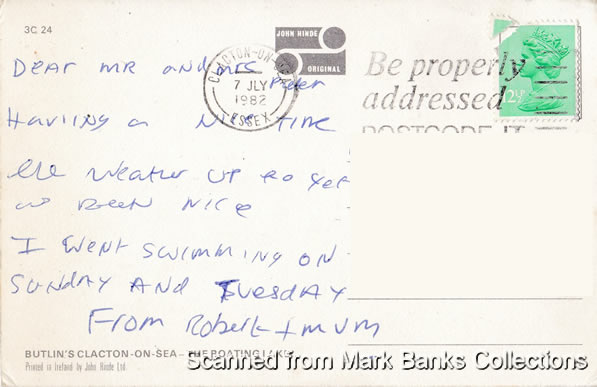 3C 24
JOHN HINDE
ORIGINAL
CLACTON-ON-SEA
7 JLY
1982
ESSEX
Be properly
addressed
POSTCODE IT
12½
DEAR MR and MRS
Haviing a NICE TIME
the weather UP to yet
as Been Nice
I Went swimming on
SUNDAY AND TUESDAY
From Robert + mum
BUTLIN'S CLACTON-ON-SEA – THE BOATING LAKE
Printed in Ireland by John Hinde Ltd.
Scanned from Mark Banks Collections